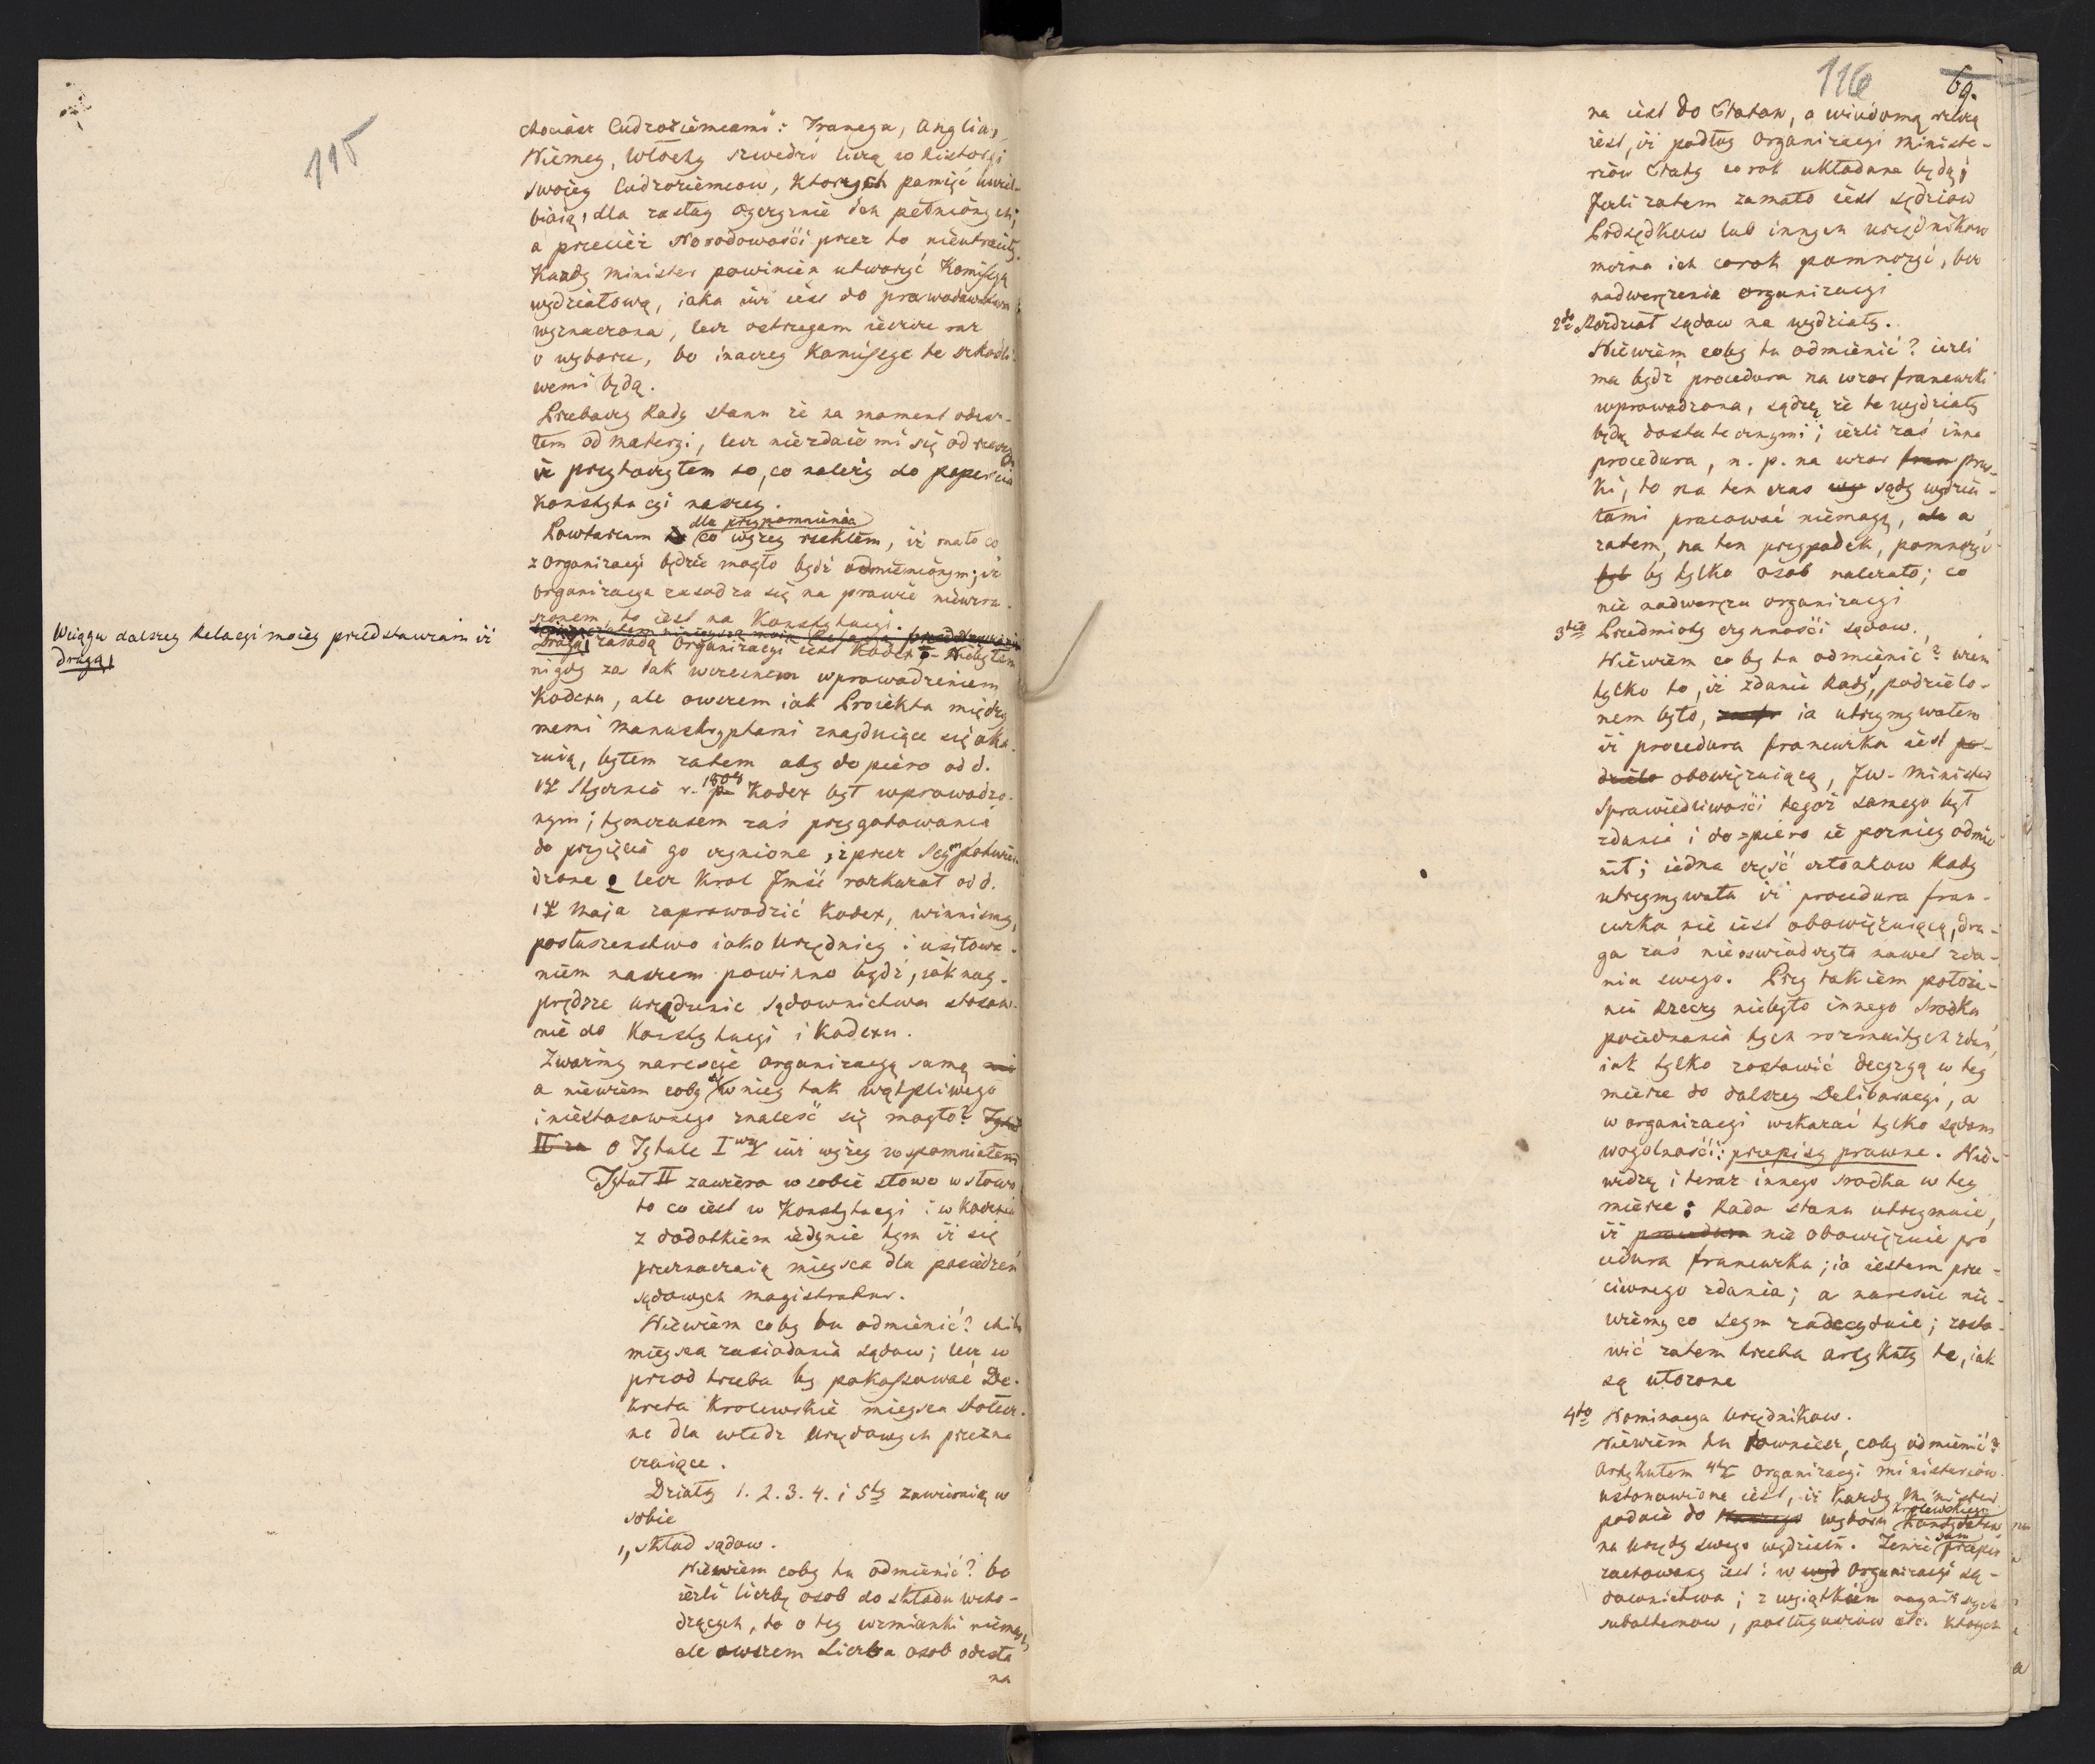 115
chociasz Cudzoziemcami: Francya, Anglia,
Niemcy, Włochy szwedzi liczą w historyi
swoiey Cudzoziemcow, ktorych pamięć uwiel-
biaią, dla zasług Oyczyznie ich pełnionych;
a przecież Narodowości przez to nieutraciły.
Każdy Minister powinien utworzyć Komissyą
wydziałową, iaka iuż iest do prawodawstwa
wyznaczona, lecz ostrzegam ieszcze raz
o wyborze, bo inaczey Komissye te szkodli-
wemi będą.
Przebaczy Rady stanu że na moment odstą-
łem od materyi, lecz niezdaie mi się od rzeczy
iż przytoczyłem to, co należy do poparcia
Konstytucyi naszey.
dla przypomnienia
Powtarzam co wyżey rzekłem, iż mało co
z Organizacyi będzie mogło bydź odmienionym; iż
Organizacya zasadza się na prawie niewzru-
szonem, to iest na Konstytucyi.
Wciągu dalszey Relacyi moiey przedstawiam iż
drugą
Drugą zasadą Organizacyi iest Kodex - Niebyłem
nigdy za tak wczesnem wprowadzeniem
Kodexu, ale owszem iak Proiekta między
memi Manuskryptami znayduiące się oka-
zuią, byłem zatem aby dopiero od d.
1808
1go Stycznia r. Kodex był wprowadzo-
nym; tymczasem zaś przygotowania
do przyięcia go czynione, i przez Seym potwier-
dzone lecz Krol Jmść rozkazał od d.
1go Maja zaprowadzić Kodex, winnismy
posłuszenstwo iako Urzędnicy i usiłowa-
niem naszem powinno bydź, iak nay-
prędsze urządzenie Sądownictwa stosow-
nie do Konstytucyi i Kodexu.
Zważmy nareszcie Organizacyą samą
a niewiem coby w niey tak wątpliwego
i niestosownego znaleść się mogło?
O Tytule I wszy iuż wyżey wspomniałem
Tytuł II zawiera w sobie słowo w słowo
to co iest w Konstytucyi i w Kodexie
z dodatkiem iedynie tym iż się
przeznaczaią mieysca dla posiedzeń
sądowych magistratur.
Niewiem coby tu odmienić? chiba
mieysca zasiadania sądow; lecz w
przod trzeba by pokassować De-
kreta Krolewskie mieysca stołecz-
ne dla władz Urzędowych przezna-
czaiące.
Działy 1. 2. 3. 4. i 5ty zawieraią w
sobie
1, skład sądow.
Niewiem coby tu odmienić? bo
ieżli liczbę osob do składu wcho-
dzących, to o tey wzmianki niemasz,
ale owszem Liczba osob odesła
na
116
69.
na iest do Etatow, a wiadomą rzeczą
iest, iż podług Organizacyi Ministe-
riow Etaty corok układane będą;
Jeżli zatem zamało iest sędziow
Podsędkow lub innych urzędnikow
można ich corok pomnożyć, bez
nadwerężenia organizacyi
2do Rozdział sądow na wydziały.
Niewiem coby tu odmienić? ieżli
ma bydź procedura na wzor francuzki
wprowadzona, sądzę że te wydziały
będą dostatecznymi; ieżli zaś inna
procedura, n. p. na wzor prus-
ki, to na ten czas sądy wydzia-
łami pracować niemogą, a
zatem, na ten przypadek, pomnożyć
by tylko osob należało; co
nie nadweręża organizacyi
3tio Przedmioty czynności sądow.
Niewiem co by tu odmienić? wiem
tylko to, iż zdanie Rady podzielo-
nem było, ia utrzymywałem
iż procedura francuzka iest
obowięzuiącą, JW. Minister
Sprawiedliwości tegoż samego był
zdania i do-piero ie pozniey odmie-
nił; iedna część członkow Rady
utrzymywała iż procedura fran-
cuzka nie iest obowięzuiącą, dru-
ga zaś nieoswiadczyła nawet zda-
nia swego. Przy takiem położe-
niu rzeczy niebyło innego srodka
poiednania tych rozmaitych zdań,
iak tylko zostawić decyzyą w tey
mierze do dalszey Deliberacyi, a
w organizacyi wskazać tylko sądom
wogolności: przepisy prawne. Nie-
widzę i teraz innego srodka w tey
mierze: Rada stanu utrzymuie,
iż nie obowięzuie pro
cedura francuzka; ia iestem prze-
ciwnego zdania; a nareszcie nie-
wiemy co Seym zadecyduie; zosta-
wić zatem trzeba artykuły te, iak
są ułożone
4to Nominacya Urzędnikow.
Niewiem tu rownież, coby odmienić?
Artykułem 4tym Organizacyi ministeriow
ustanowione iest, iż każdy Minister
krolewskiego
podaie do wyboru Kandydatow
na Urzędy swego wydziału. Tenże sam przepis
zachowany iest i w Organizacyi są-
downictwa; z wyiątkiem nayniższych
subalternow, posługaczow etc. ktorych